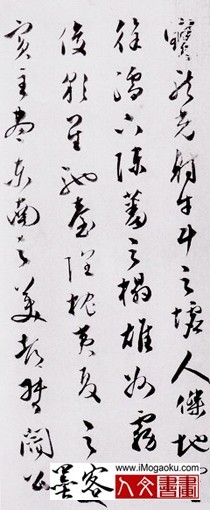 寶龍光射牛斗之墟人傑地
徐孺下陳蕃之榻雄州霧
俊彩星馳臺隍枕夷夏之
賓主盡東南之美都督閻公
墨客
www.iMogaoku.com
人文書畫